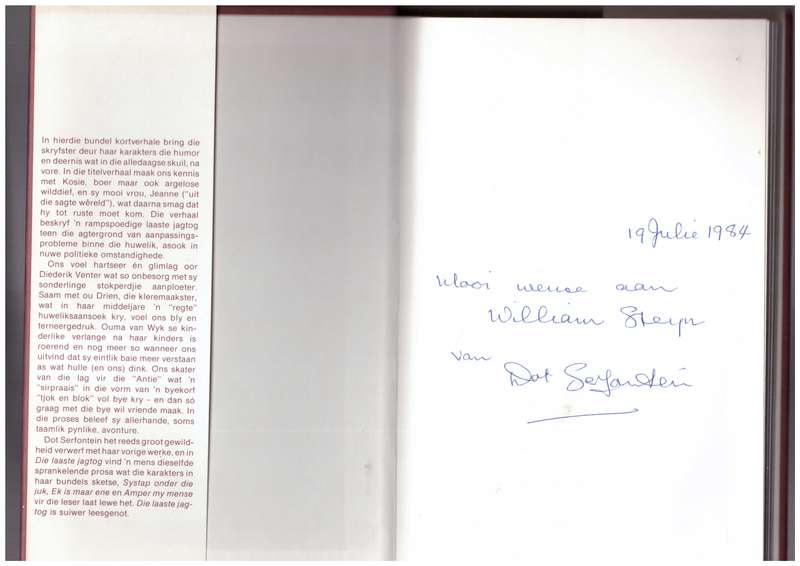 In hierdie bundel kortverhale bring die
skryfster deur haar karakters die humor
en deernis wat in die alledaagse skuil, na
vore. In die titelverhaal maak ons kennis
met Kosie, boer maar ook argelose
wilddief, en sy mooi vrou, Jeanne ("uit
die sagte wêreld"), wat daarna smag dat
hy tot ruste moet kom. Die verhaal
beskryf 'n rampspoedige laaste jagtog
teen die agtergrond van aanpassings-
probleme binne die huwelik, asook in
nuwe politieke omstandighede.
Ons voel hartseer én glimlag oor
Diederik Venter wat so onbesorg met sy
sonderlinge stokperdjie aanploeter.
Saam met ou Drien, die kleremaakster,
wat in haar middeljare 'n "regte"
huweliksaansoek kry, voel ons bly en
terneergedruk. Ouma van Wyk se kin-
derlike verlange na haar kinders is
roerend en nog meer so wanneer ons
uitvind dat sy eintlik baie meer verstaan
as wat hulle (en ons) dink. Ons skater
van die lag vir die "Antie" wat 'n
"sirpraais" in die vorm van 'n byekorf
"tjok en blok" vol bye kry - en dan só
graag met die bye wil vriende maak. In
die proses beleef sy allerhande, soms
taamlik pynlike, avonture.
Dot Serfontein het reeds groot gewild-
heid verwerf met haar vorige werke, en in
Die laaste jagtog vind 'n mens dieselfde
sprankelende prosa wat die karakters in
haar bundels sketse, Systap onder die
juk, Ek is maar ene en Amper my mense
vir die leser laat lewe het. Die laaste jag-
tog is suiwer leesgenot.
19 Julie 1984
Mooi wense aan
William Steyn
van
Dot Serfontein